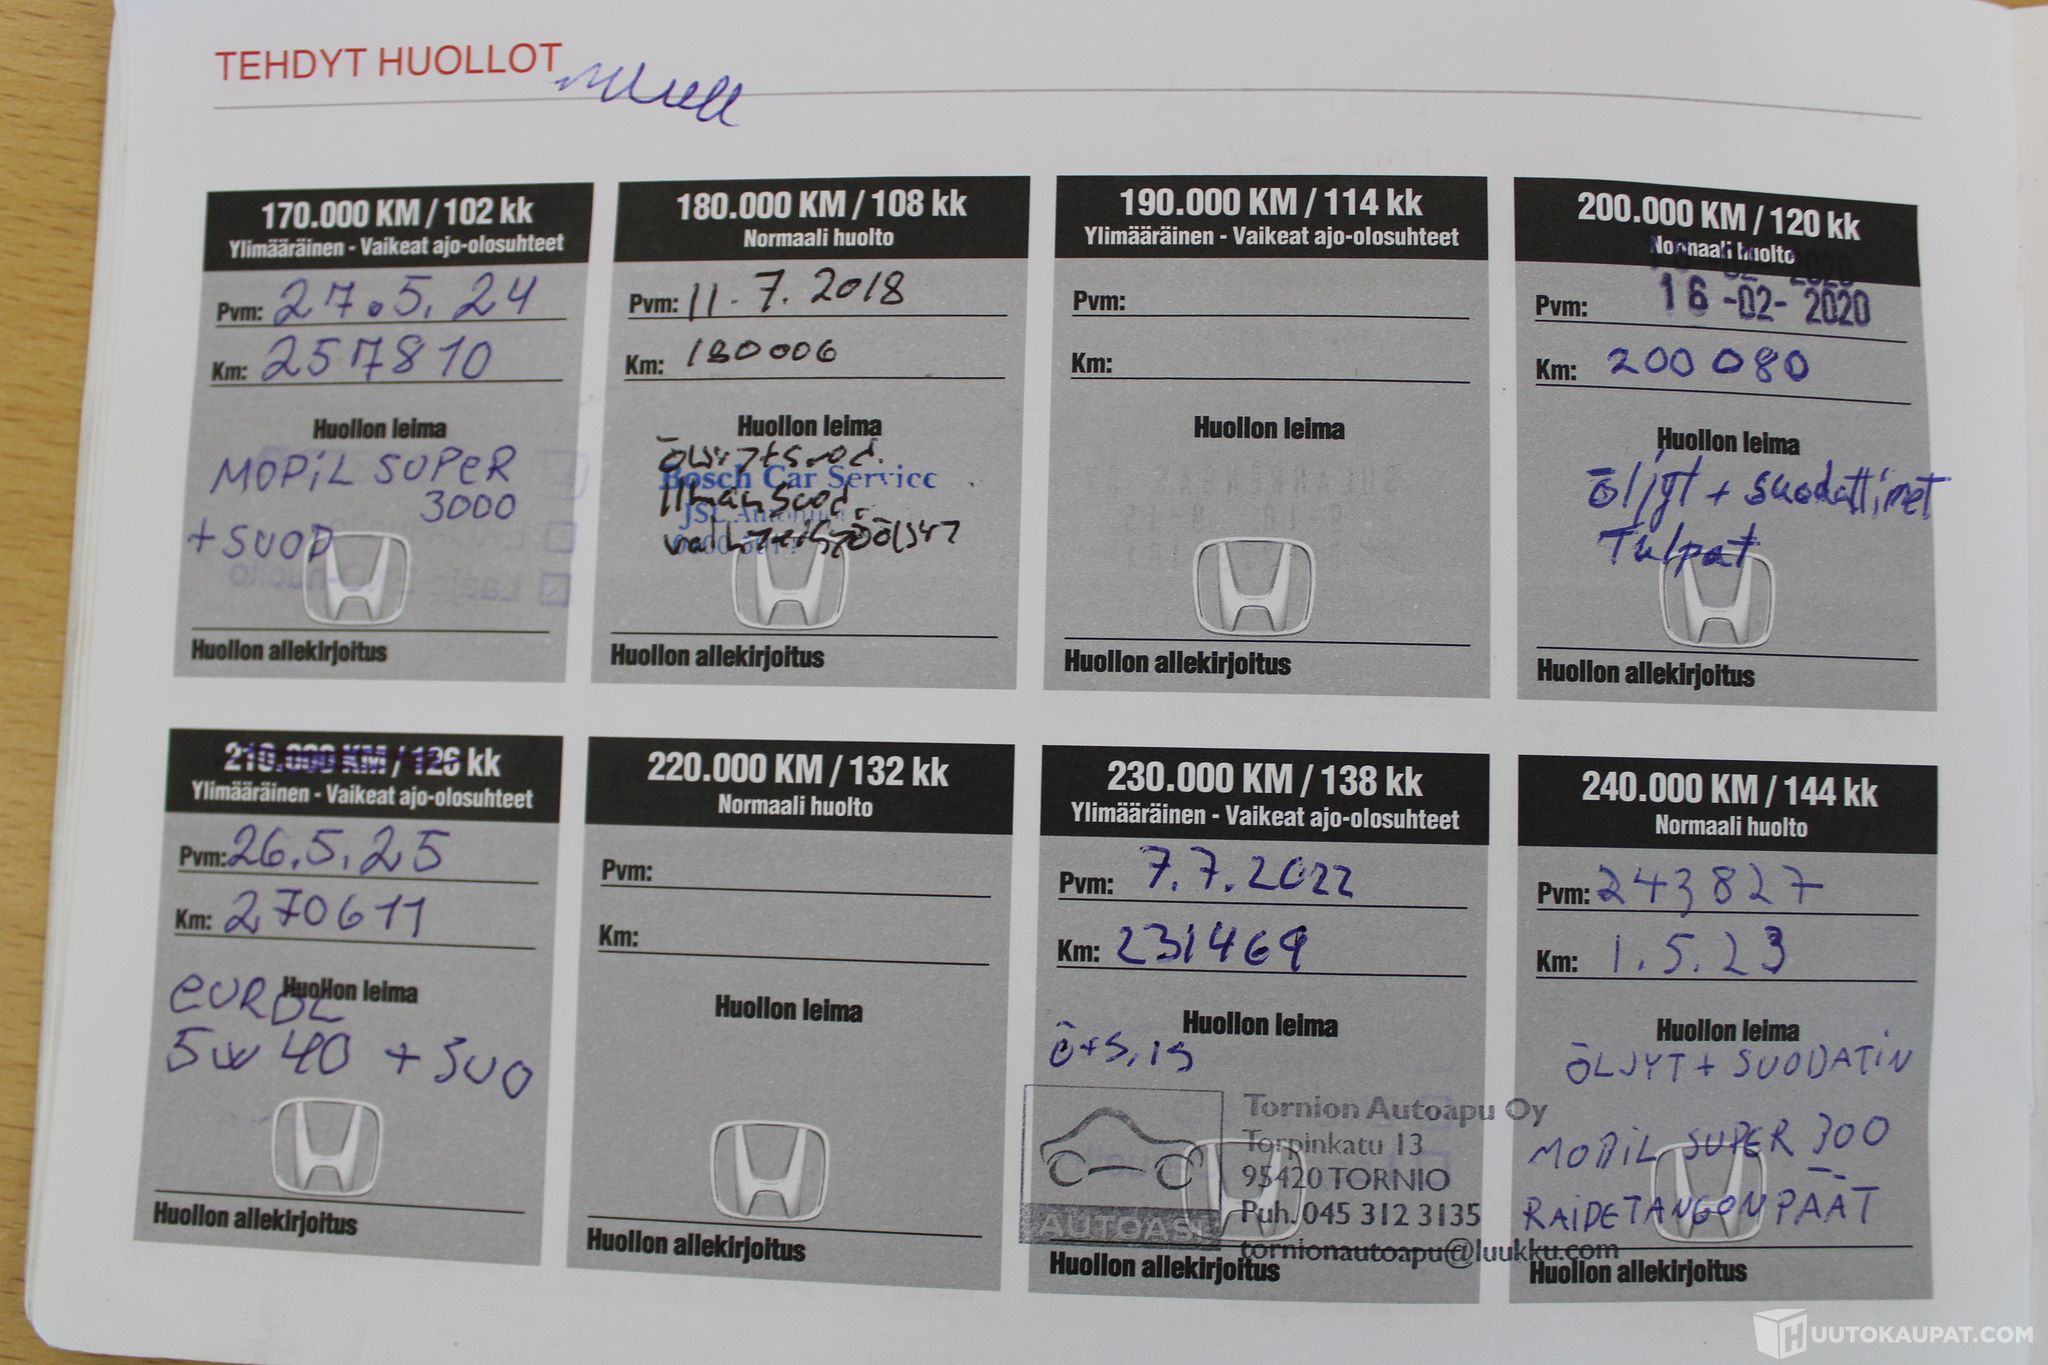 TEHDYT HUOLLOT
170.000 KM / 102 kk
Ylimääräinen - Vaikeat ajo-olosuhteet
Pvm: 27.5.24
Km: 257810
Huollon leima
MOPiL SUPER
3000
+ SUOD
Huollon allekirjoitus
180.000 KM / 108 kk
Normaali huolto
Pvm: 11.7.2018
Km: 180006
Huollon leima
Öljyt+suod.
Bosch Car Service
Ilman suod.
JSL
Huollon allekirjoitus
190.000 KM / 114 kk
Ylimääräinen - Vaikeat ajo-olosuhteet
Pvm:
Km:
Huollon leima
Huollon allekirjoitus
200.000 KM / 120 kk
Normaali huolto
Pvm: 16-02-2020
Km: 200 080
Huollon leima
Öljyt + suodattimet
Tulpat
Huollon allekirjoitus
210.000 KM / 126 kk
Ylimääräinen - Vaikeat ajo-olosuhteet
Pvm: 26.5.25
Km: 270611
Huollon leima
EUROL
5W 40 + SUO
Huollon allekirjoitus
220.000 KM / 132 kk
Normaali huolto
Pvm:
Km:
Huollon leima
Huollon allekirjoitus
230.000 KM / 138 kk
Ylimääräinen - Vaikeat ajo-olosuhteet
Pvm: 7.7.2022
Km: 231469
Huollon leima
Ö+S, IS
Tornion Autoapu Oy
Torpinkatu 13
95420 TORNIO
Puh. 045 312 3135
AUTOASI
tornionautoapu@luukku.com
Huollon allekirjoitus
240.000 KM / 144 kk
Normaali huolto
Pvm: 243827
Km: 1.5.23
Huollon leima
ÖLJYT + SUODATIN
MOBIL SUPER 300
RAIDETANGONPÄÄT
Huollon allekirjoitus
HUUTOKAUPAT.COM